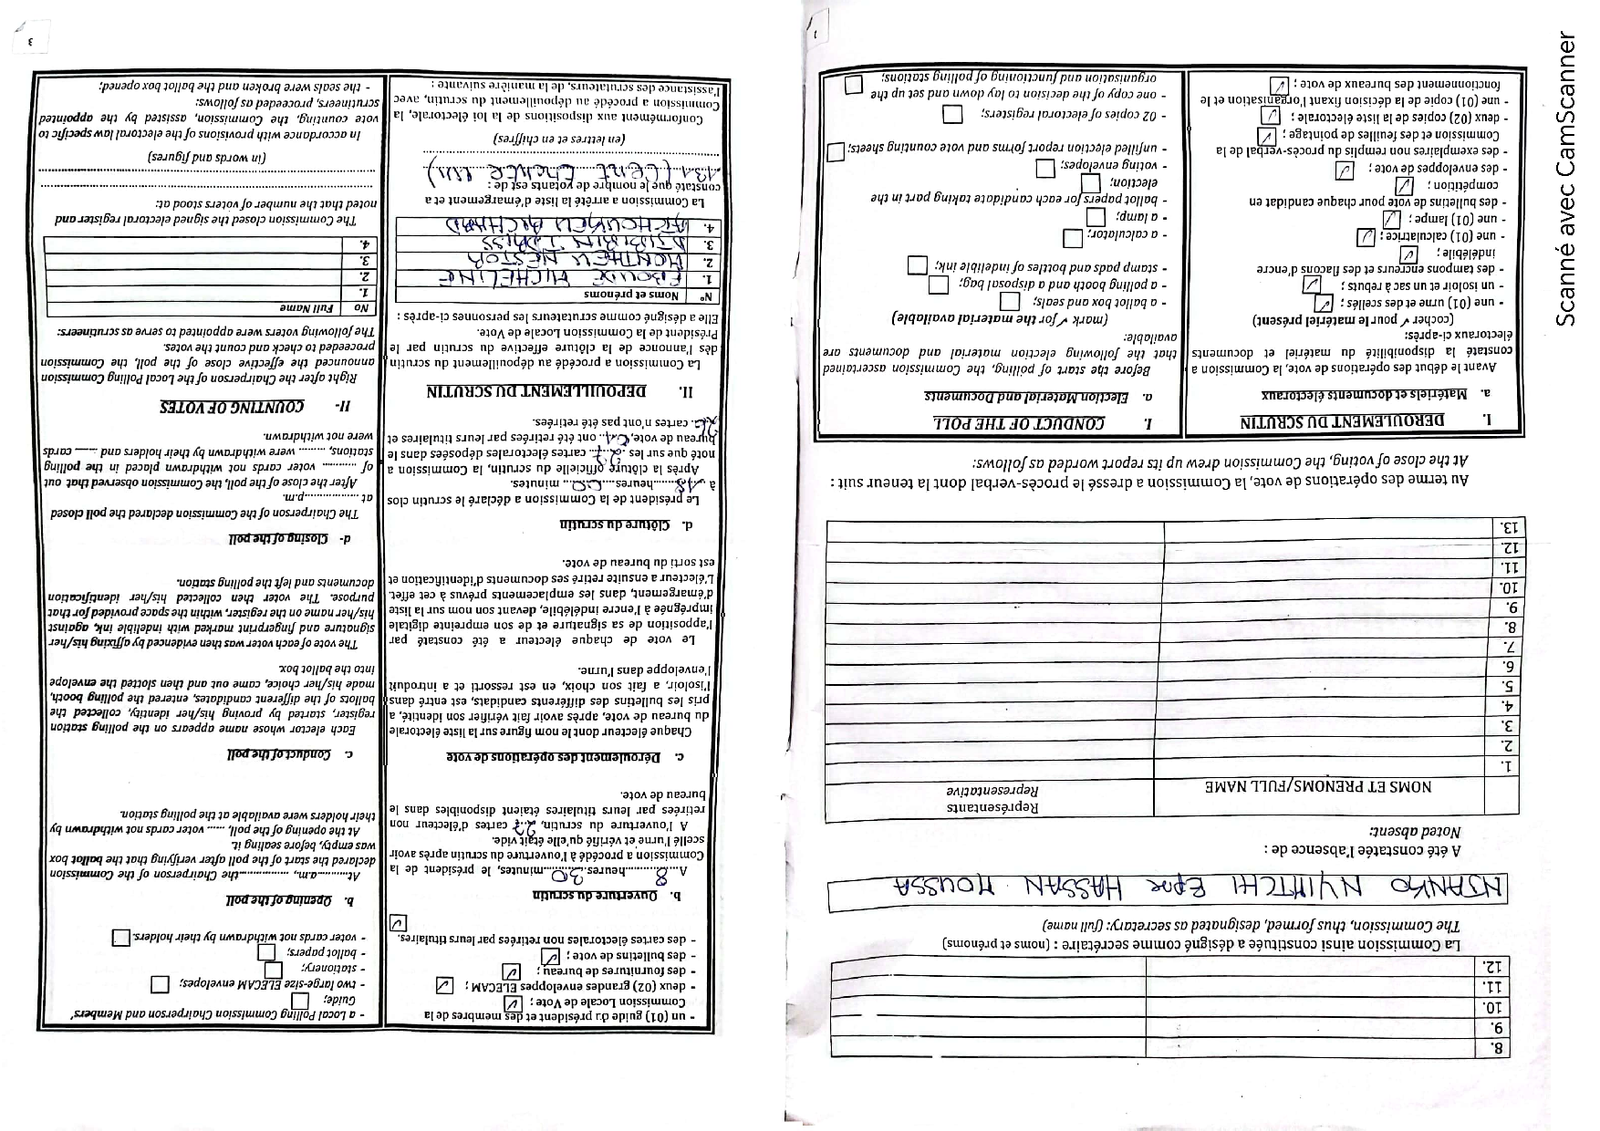 8.
9.
10.
11.
12.
La Commission ainsi constituée a désigné comme secrétaire : (noms et prénoms)
The Commission, thus formed, designated as secretary: (full name)
NJANKO NYIMTCHI Epse HASSAN MOUSSA
A été constatée l'absence de :
Noted absent:
NOMS ET PRENOMS/FULL NAME
Représentants
Representative
1.
2.
3.
4.
5.
6.
7.
8.
9.
10.
11.
12.
13.
Au terme des opérations de vote, la Commission a dressé le procès-verbal dont la teneur suit :
At the close of voting, the Commission drew up its report worded as follows:
I. DEROULEMENT DU SCRUTIN
a. Matériels et documents électoraux
Avant le début des opérations de vote, la Commission a
constaté la disponibilité du matériel et documents
électoraux ci-après:
(cocher ✓ pour le matériel présent)
- une (01) urne et des scellés ; ✓
- un isoloir et un sac à rebuts ; ✓
- des tampons encreurs et des flacons d'encre
indélébile ; ✓
- une (01) calculatrice ; ✓
- une (01) lampe ; ✓
- des bulletins de vote pour chaque candidat en
compétition ; ✓
- des enveloppes de vote ; ✓
- des exemplaires non remplis du procès-verbal de la
Commission et des feuilles de pointage ; ✓
- deux (02) copies de la liste électorale ; ✓
- une (01) copie de la décision fixant l'organisation et le
fonctionnement des bureaux de vote ; ✓
I. CONDUCT OF THE POLL
a. Election Material and Documents
Before the start of polling, the Commission ascertained
that the following election material and documents are
available:
(mark ✓ for the material available)
- a ballot box and seals;
- a polling booth and a disposal bag;
- stamp pads and bottles of indelible ink;
- a calculator;
- a lamp;
- ballot papers for each candidate taking part in the
election;
- voting envelopes;
- unfilled election report forms and vote counting sheets;
- 02 copies of electoral registers;
- one copy of the decision to lay down and set up the
organisation and functioning of polling stations;
- un (01) guide du président et des membres de la
Commission Locale de Vote ; ✓
- deux (02) grandes enveloppes ELECAM ; ✓
- des fournitures de bureau ; ✓
- des bulletins de vote ; ✓
- des cartes électorales non retirées par leurs titulaires. ✓
b. Ouverture du scrutin
A...8...heures...30...minutes, le président de la
Commission a procédé à l'ouverture du scrutin après avoir
scellé l'urne et vérifié qu'elle était vide.
A l'ouverture du scrutin, 27 cartes d'électeur non
retirées par leurs titulaires étaient disponibles dans le
bureau de vote.
c. Déroulement des opérations de vote
Chaque électeur dont le nom figure sur la liste électorale
du bureau de vote, après avoir fait vérifier son identité, a
pris les bulletins des différents candidats, est entré dans
l'isoloir, a fait son choix, en est ressorti et a introduit
l'enveloppe dans l'urne.
Le vote de chaque électeur a été constaté par
l'apposition de sa signature et de son empreinte digitale
imprégnée à l'encre indélébile, devant son nom sur la liste
d'émargement, dans les emplacements prévus à cet effet.
L'électeur a ensuite retiré ses documents d'identification et
est sorti du bureau de vote.
d. Clôture du scrutin
Le président de la Commission a déclaré le scrutin clos
à 18 heures 00 minutes.
Après la clôture officielle du scrutin, la Commission a
noté que sur les 27 cartes électorales déposées dans le
bureau de vote, 01 ont été retirées par leurs titulaires et
26 cartes n'ont pas été retirées.
II. DEPOUILLEMENT DU SCRUTIN
La Commission a procédé au dépouillement du scrutin
dès l'annonce de la clôture effective du scrutin par le
Président de la Commission Locale de Vote.
Elle a désigné comme scrutateurs les personnes ci-après :
N° Noms et prénoms
1. MICHELINE
2. NESTOR
3. IDRISS
4. ARCHARD
La Commission a arrêté la liste d'émargement et a
constaté que le nombre de votants est de :
131 (CENT TRENTE UN)
(en lettres et en chiffres)
Conformément aux dispositions de la loi électorale, la
Commission a procédé au dépouillement du scrutin, avec
l'assistance des scrutateurs, de la manière suivante :
- a Local Polling Commission Chairperson and Members'
Guide;
- two large-size ELECAM envelopes;
- stationery;
- ballot papers;
- voter cards not withdrawn by their holders.
b. Opening of the poll
At.........a.m, ...............the Chairperson of the Commission
declared the start of the poll after verifying that the ballot box
was empty, before sealing it.
At the opening of the poll, ...... voter cards not withdrawn by
their holders were available at the polling station.
c. Conduct of the poll
Each elector whose name appears on the polling station
register, started by proving his/her identity, collected the
ballots of the different candidates, entered the polling booth,
made his/her choice, came out and then slotted the envelope
into the ballot box.
The vote of each voter was then evidenced by affixing his/her
signature and fingerprint marked with indelible ink, against
his/her name on the register, within the space provided for that
purpose. The voter then collected his/her identification
documents and left the polling station.
d- Closing of the poll
The Chairperson of the Commission declared the poll closed
at ..................p.m.
After the close of the poll, the Commission observed that out
of .......... voter cards not withdrawn placed in the polling
stations, ........ were withdrawn by their holders and ------ cards
were not withdrawn.
II- COUNTING OF VOTES
Right after the Chairperson of the Local Polling Commission
announced the effective close of the poll, the Commission
proceeded to check and count the votes.
The following voters were appointed to serve as scrutineers:
No Full Name
1.
2.
3.
4.
The Commission closed the signed electoral register and
noted that the number of voters stood at:
(in words and figures)
In accordance with provisions of the electoral law specific to
vote counting, the Commission, assisted by the appointed
scrutineers, proceeded as follows:
- the seals were broken and the ballot box opened;
3
Scanné avec CamScanner